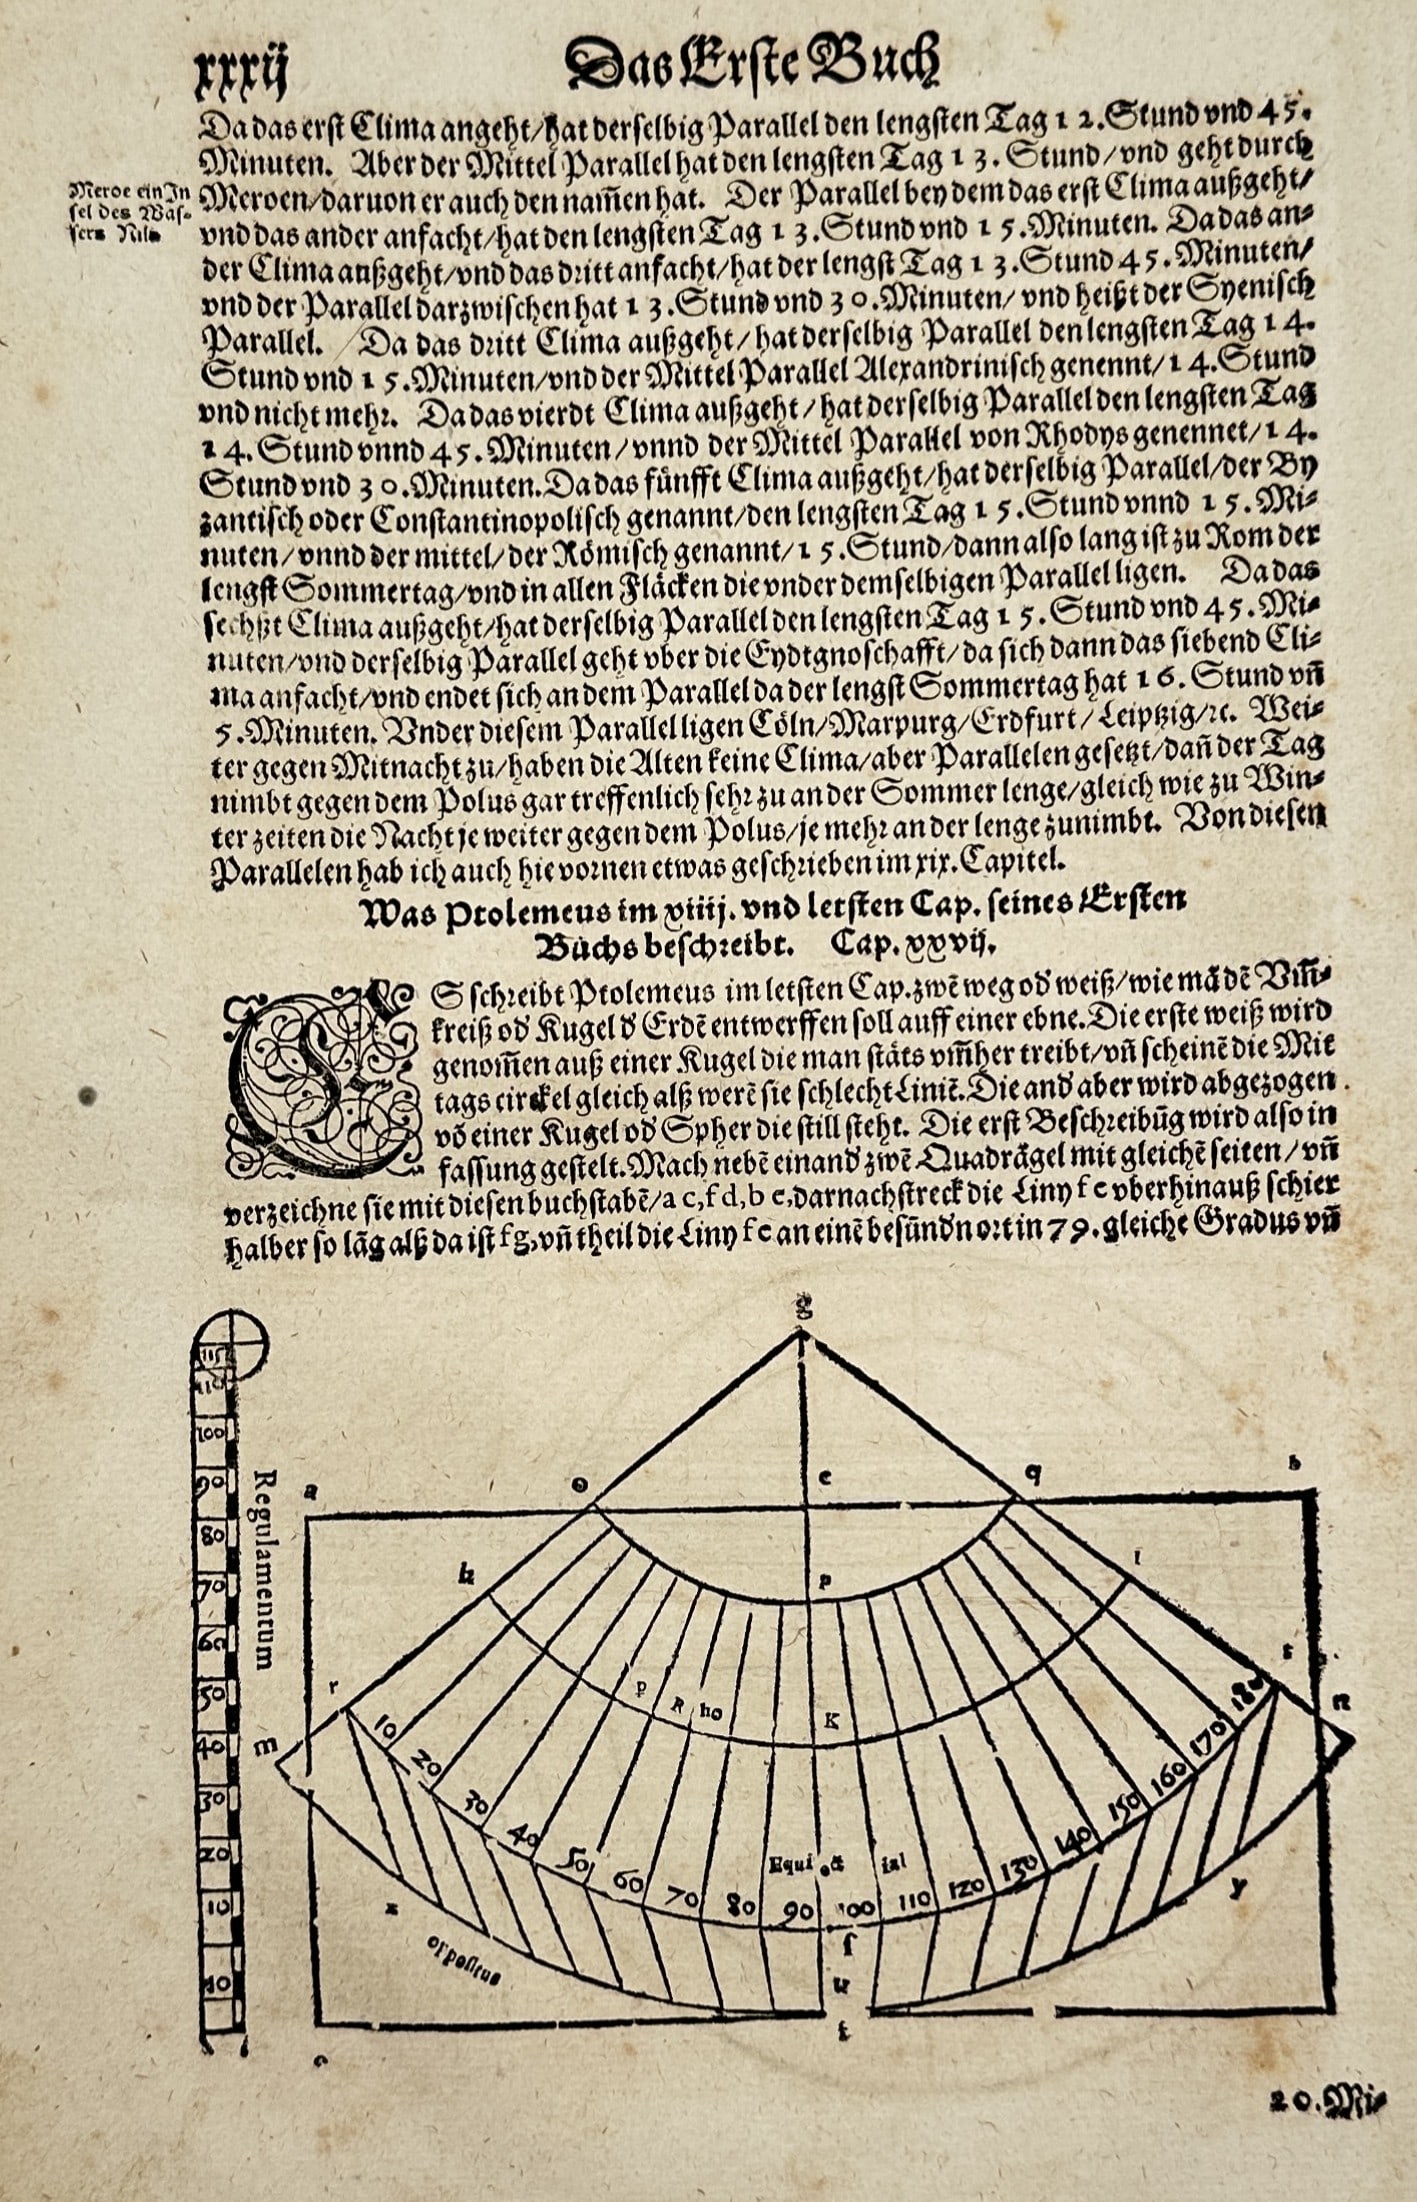 xxxij
Das Erste Buch
Da das erst Clima angeht/hat derselbig Parallel den lengsten Tag 12.Stund vnd 45.
Minuten. Aber der Mittel Parallel hat den lengsten Tag 13. Stund/vnd geht durch
Meroe ein In
sel des Was-
sers Nils
Meroen/daruon er auch den nam̄en hat. Der Parallel bey dem das erst Clima außgeht/
vnd das ander anfacht/hat den lengsten Tag 13.Stund vnd 15.Minuten. Da das an-
der Clima außgeht/vnd das dritt anfacht/hat der lengst Tag 13.Stund 45.Minuten/
vnd der Parallel darzwischen hat 13.Stund vnd 30.Minuten/ vnd heißt der Syenisch
Parallel. Da das dritt Clima außgeht/ hat derselbig Parallel den lengsten Tag 14.
Stund vnd 15.Minuten/vnd der Mittel Parallel Alexandrinisch genennt/14.Stund
vnd nicht mehr. Da das vierdt Clima außgeht/hat derselbig Parallel den lengsten Tag
14. Stund vnnd 45.Minuten/vnnd der Mittel Parallel von Rhodys genennet/14.
Stund vnd 30.Minuten.Da das fünfft Clima außgeht/hat derselbig Parallel/der By
zantisch oder Constantinopolisch genannt/den lengsten Tag 15.Stund vnnd 15.Mi-
nuten/vnnd der mittel/der Römisch genannt/15.Stund/dann also lang ist zu Rom der
lengst Sommertag/vnd in allen Fläcken die vnder demselbigen Parallel ligen. Da das
sechßt Clima außgeht/hat derselbig Parallel den lengsten Tag 15. Stund vnd 45.Mi-
nuten/vnd derselbig Parallel geht vber die Eydtgnoschafft/da sich dann das siebend Cli-
ma anfacht/vnd endet sich an dem Parallel da der lengst Sommertag hat 16. Stund vn̄
5.Minuten. Vnder diesem Parallel ligen Cöln/Marpurg/Erdfurt/Leiptzig/ꝛc. Wei-
ter gegen Mitnacht zu/haben die Alten keine Clima/aber Parallelen gesetzt/dan̄ der Tag
nimbt gegen dem Polus gar treffenlich sehr zu an der Sommer lenge/gleich wie zu Win-
ter zeiten die Nacht je weiter gegen dem Polus/je mehr an der lenge zunimbt. Von diesen
Parallelen hab ich auch hie vornen etwas geschrieben im xix.Capitel.
Was Ptolemeus im xxiiij. vnd letsten Cap. seines Ersten
Buchs beschreibt. Cap. xxvij.
ES schreibt Ptolemeus im letsten Cap.zwē weg od̓ weiß/wie mā dē Vm̄-
kreiß od̓ Kugel d̓ Erdē entwerffen soll auff einer ebne.Die erste weiß wird
genom̄en auß einer Kugel die man stäts vm̄her treibt/vn̄ scheinē die Mit
tags circkel gleich alß werē sie schlecht Liniē.Die and̓ aber wird abgezogen
vō einer Kugel od̓ Spher die still steht. Die erst Beschreibūg wird also in
fassung gestelt.Mach nebē einand̓ zwē Quadrāgel mit gleichē seiten/vn̄
verzeichne sie mit diesen buchstabē/a c,f d,b e,darnach streck die Liny f e vberhinauß schier
halber so lāg alß da ist f g,vn̄ theil die Liny f e an einē besūnd̓n ort in 79.gleiche Gradus vn̄
g
115
110
100
90
80
70
60
50
40
30
20
10
10
Regulamentum
a
o
e
q
b
h
p
l
r
s
P
R
ho
K
m
n
10
20
30
40
50
60
70
80
90
100
110
120
130
140
150
160
170
180
Equi
ial
x
y
oppositus
f
u
t
c
20.Mi-